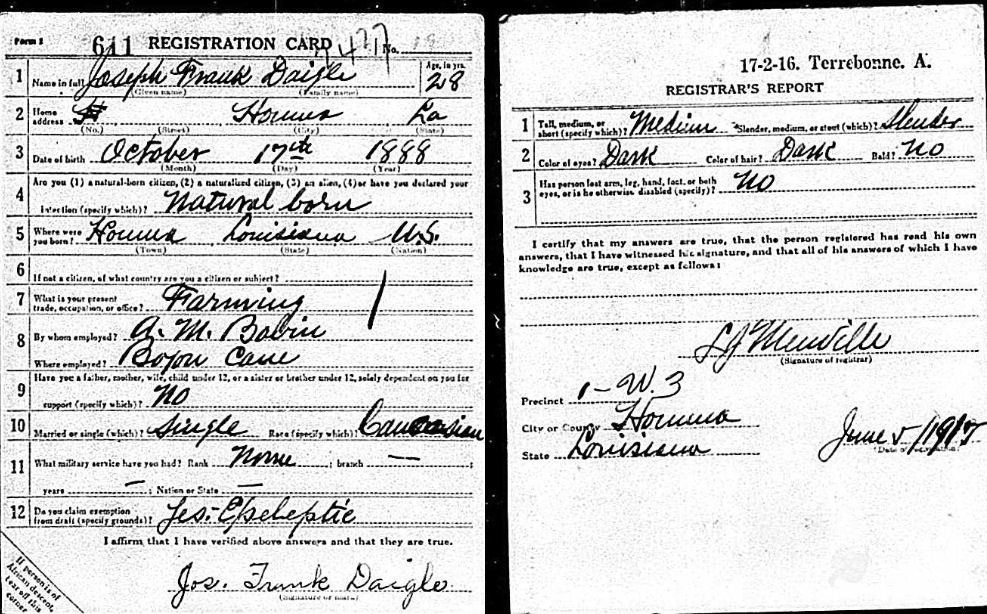 Form 1
611 REGISTRATION CARD No.
1 Name in full Joseph Frank Daigle Age, in yrs. 28
(Given name) (Family name)
2 Home address Houma La
(No.) (Street) (City) (State)
3 Date of birth October 17th 1888
(Month) (Day) (Year)
4 Are you (1) a natural-born citizen, (2) a naturalized citizen, (3) an alien, (4) or have you declared your
intention (specify which)? Natural born
5 Where were you born? Houma Louisiana U.S.
(Town) (State) (Nation)
6 If not a citizen, of what country are you a citizen or subject?
7 What is your present trade, occupation, or office? Farming
8 By whom employed? A. M. Bovin
Where employed? Cane
9 Have you a father, mother, wife, child under 12, or a sister or brother under 12, solely dependent on you for
support (specify which)? No
10 Married or single (which)? Single Race (specify which)? Caucasian
11 What military service have you had? Rank None ; branch — ;
years — ; Nation or State —
12 Do you claim exemption from draft (specify grounds)? Yes. Epeleptic
I affirm that I have verified above answers and that they are true.
Jos. Frank Daigle
(Signature or mark)
If person is of African descent, tear off this corner
17-2-16. Terrebonne. A.
REGISTRAR'S REPORT
1 Tall, medium, or short (specify which)? Medium Slender, medium, or stout (which)? Slender
2 Color of eyes? Dark Color of hair? Dark Bald? No
3 Has person lost arm, leg, hand, foot, or both eyes, or is he otherwise disabled (specify)? No
I certify that my answers are true, that the person registered has read his own
answers, that I have witnessed his signature, and that all of his answers of which I have
knowledge are true, except as follows:
(Signature of registrar)
Precinct 1-W.3
City or County Houma
State Louisiana
June 5/1917
(Date of registration)